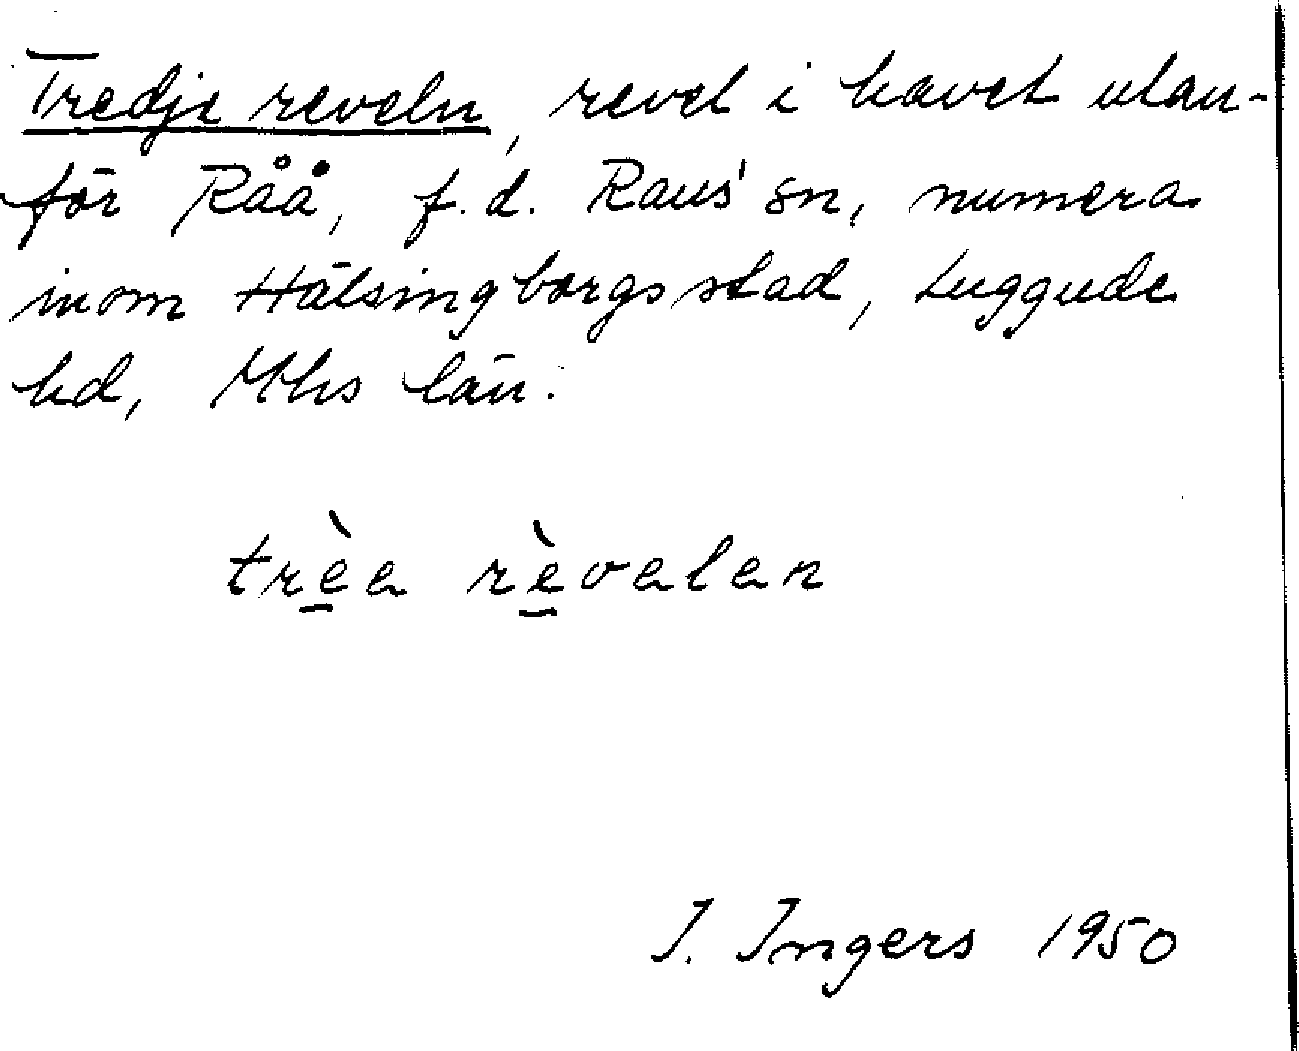 Tredje reveln, revel i havet utan-
för Råå, f.d. Raus sn, numera
inom Hälsingborgs stad, Luggude
hd, Mhs län.
trèe rèvelen
I. Ingers 1950